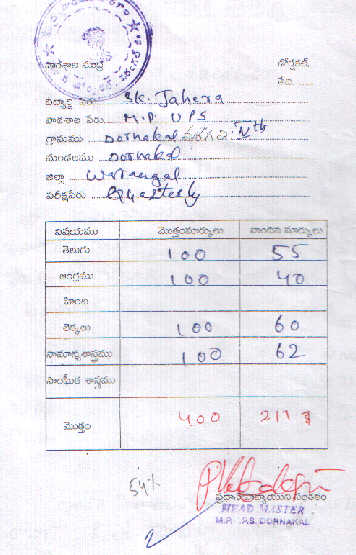 విద్యార్థి పేరు SK. Jahera
పాఠశాల పేరు M.P. UPS
గ్రామము Dornakal తరగతి IVth
మండలము Dornakal
జిల్లా Warangal
పరీక్షపేరు Quarterly
విషయము మొత్తంమార్కులు పొందిన మార్కులు
తెలుగు 100 55
ఆంగ్లము 100 40
హింది
లెక్కలు 100 60
సామాన్యశాస్త్రము 100 62
సాంఘీక శాస్త్రము
మొత్తం 400 217
54%
ప్రధానోపాధ్యాయుని సంతకం
HEAD MASTER
DORNAKAL